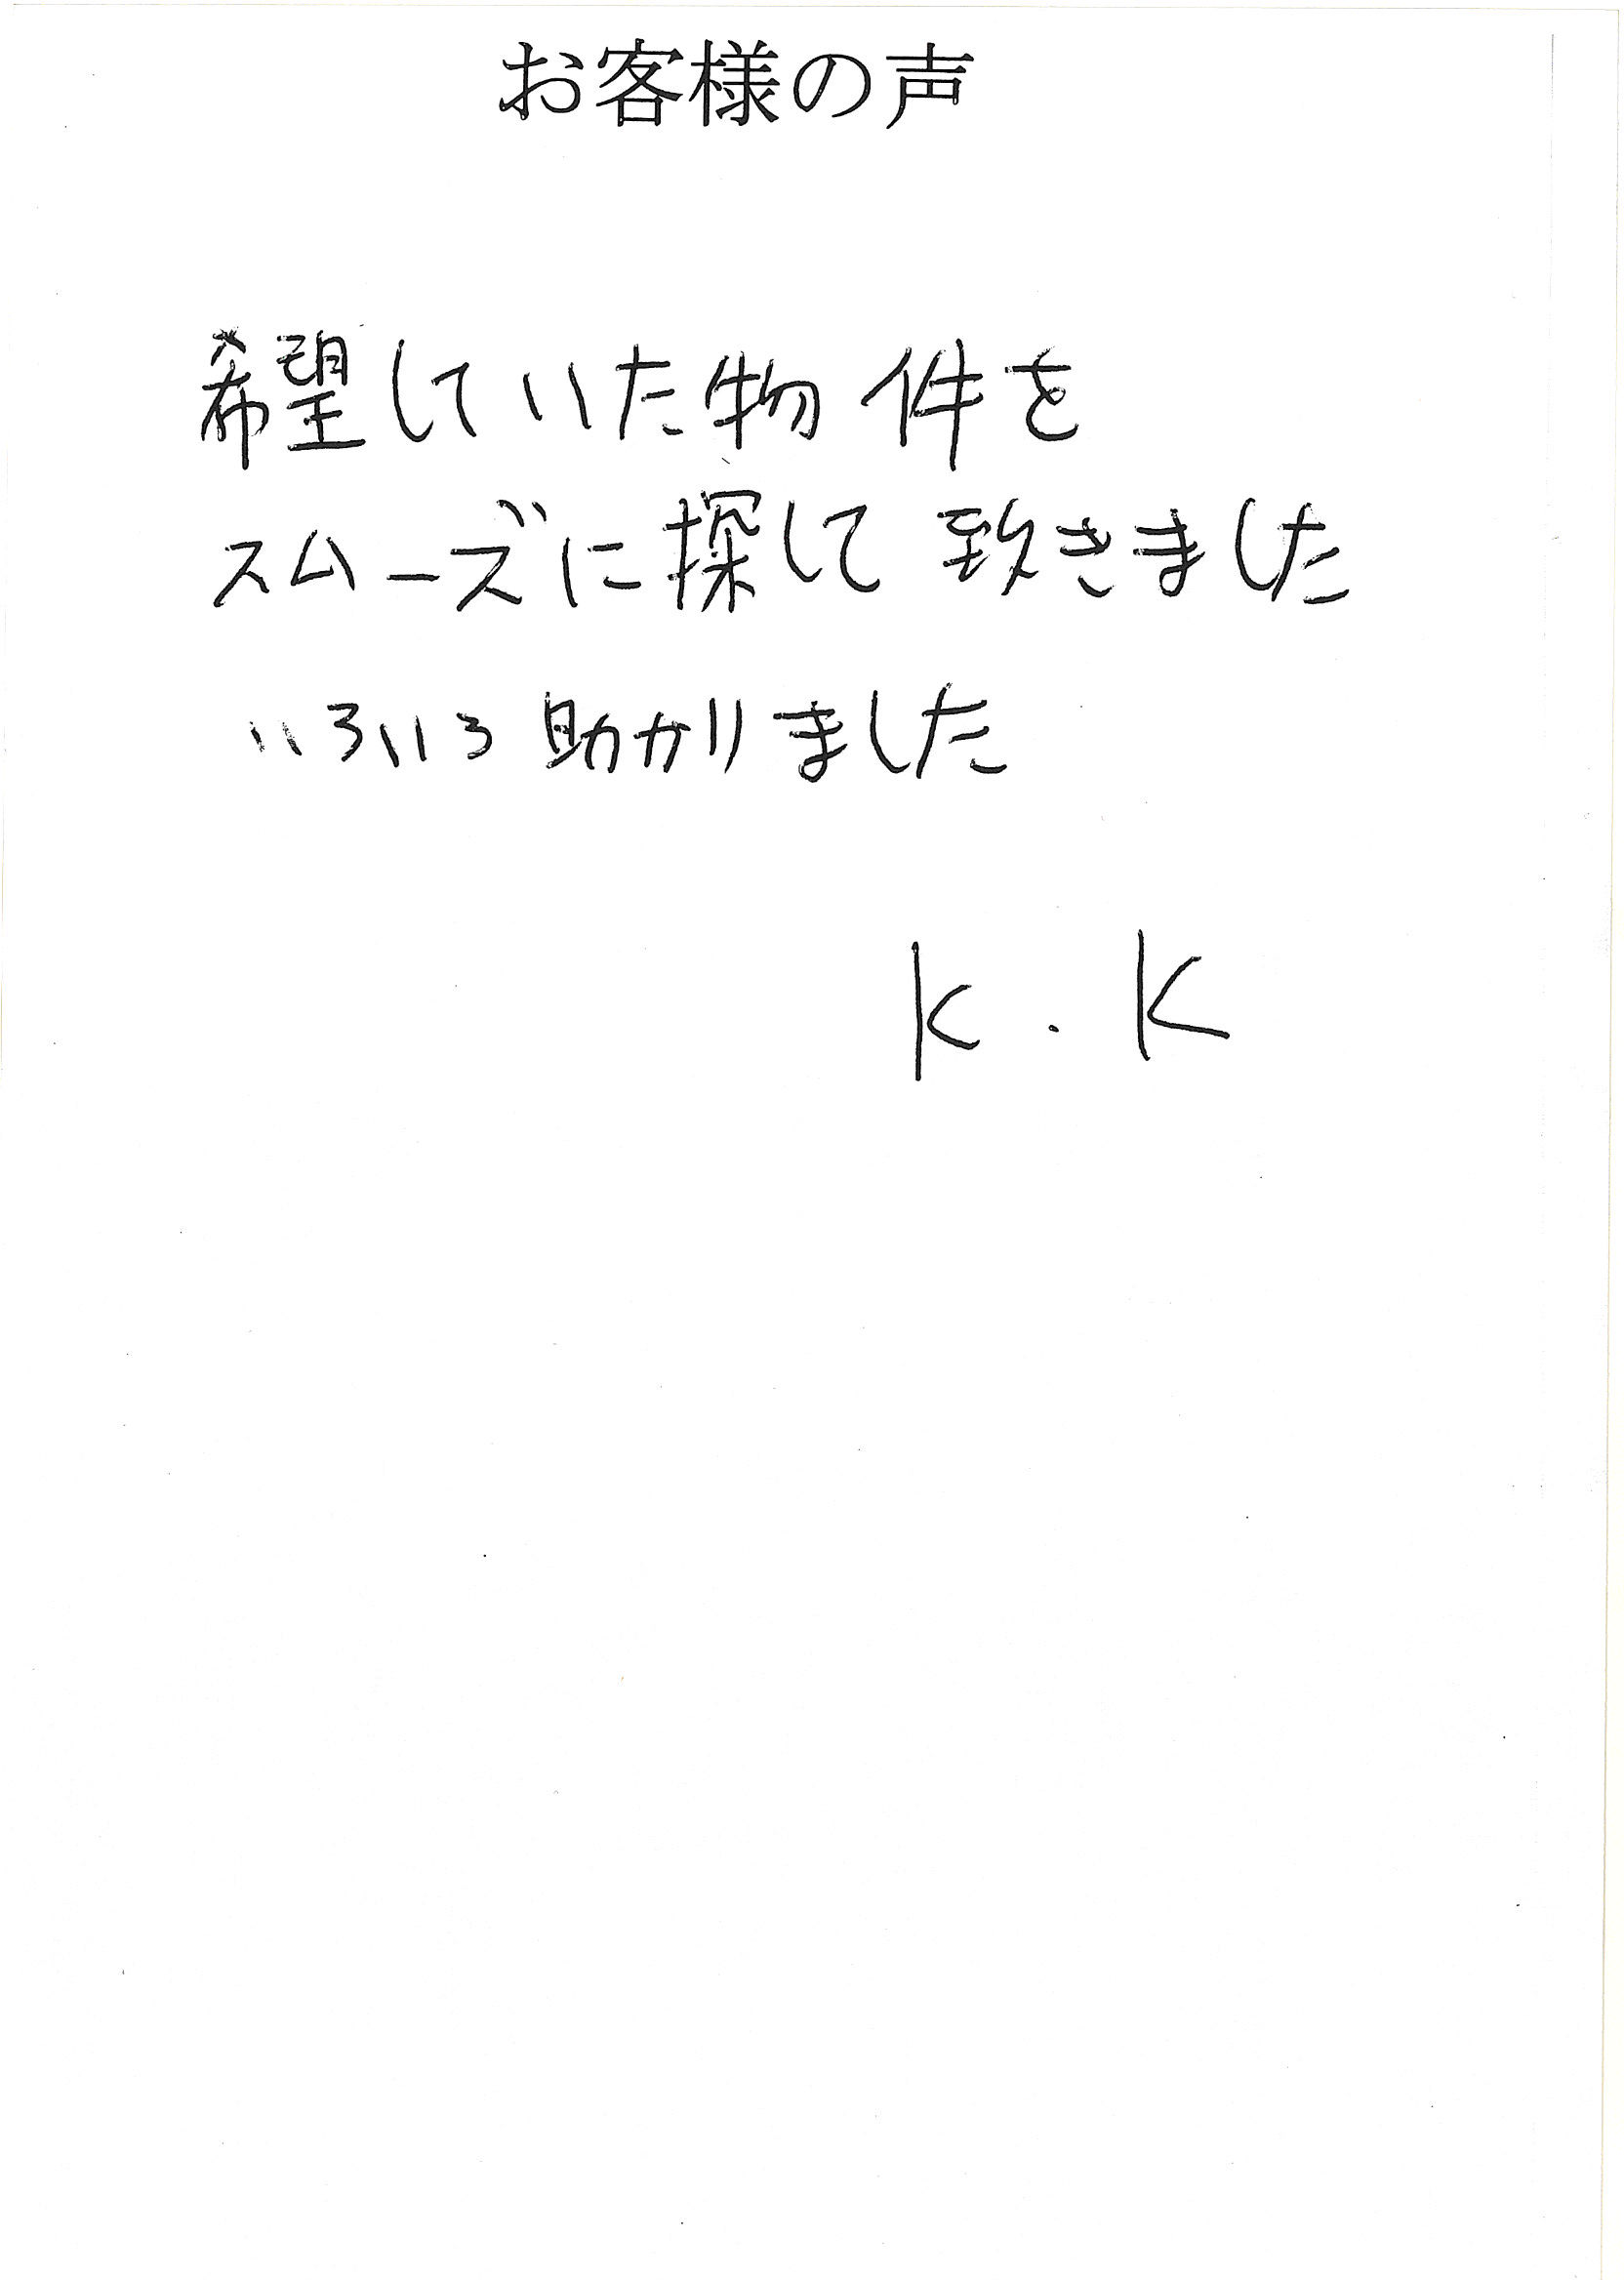 お客様の声
希望していた物件を
スムーズに探して致きました
いろいろ助かりました
K.K